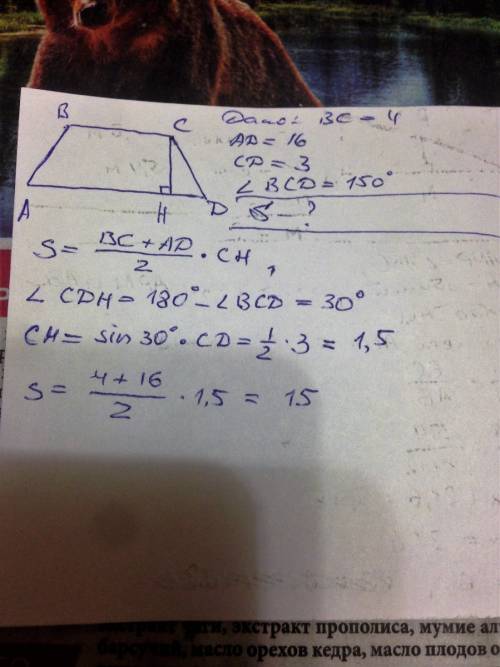 B
C
A
H
D
Дано: BC = 4
AD = 16
CD = 3
∠ BCD = 150°
S — ?
S = (BC + AD)/2 · CH,
∠ CDH = 180° - ∠ BCD = 30°
CH = sin 30° · CD = 1/2 · 3 = 1,5
S = (4 + 16)/2 · 1,5 = 15
экстракт прополиса, мумие
барсучий, масло орехов кедра, масло плодов